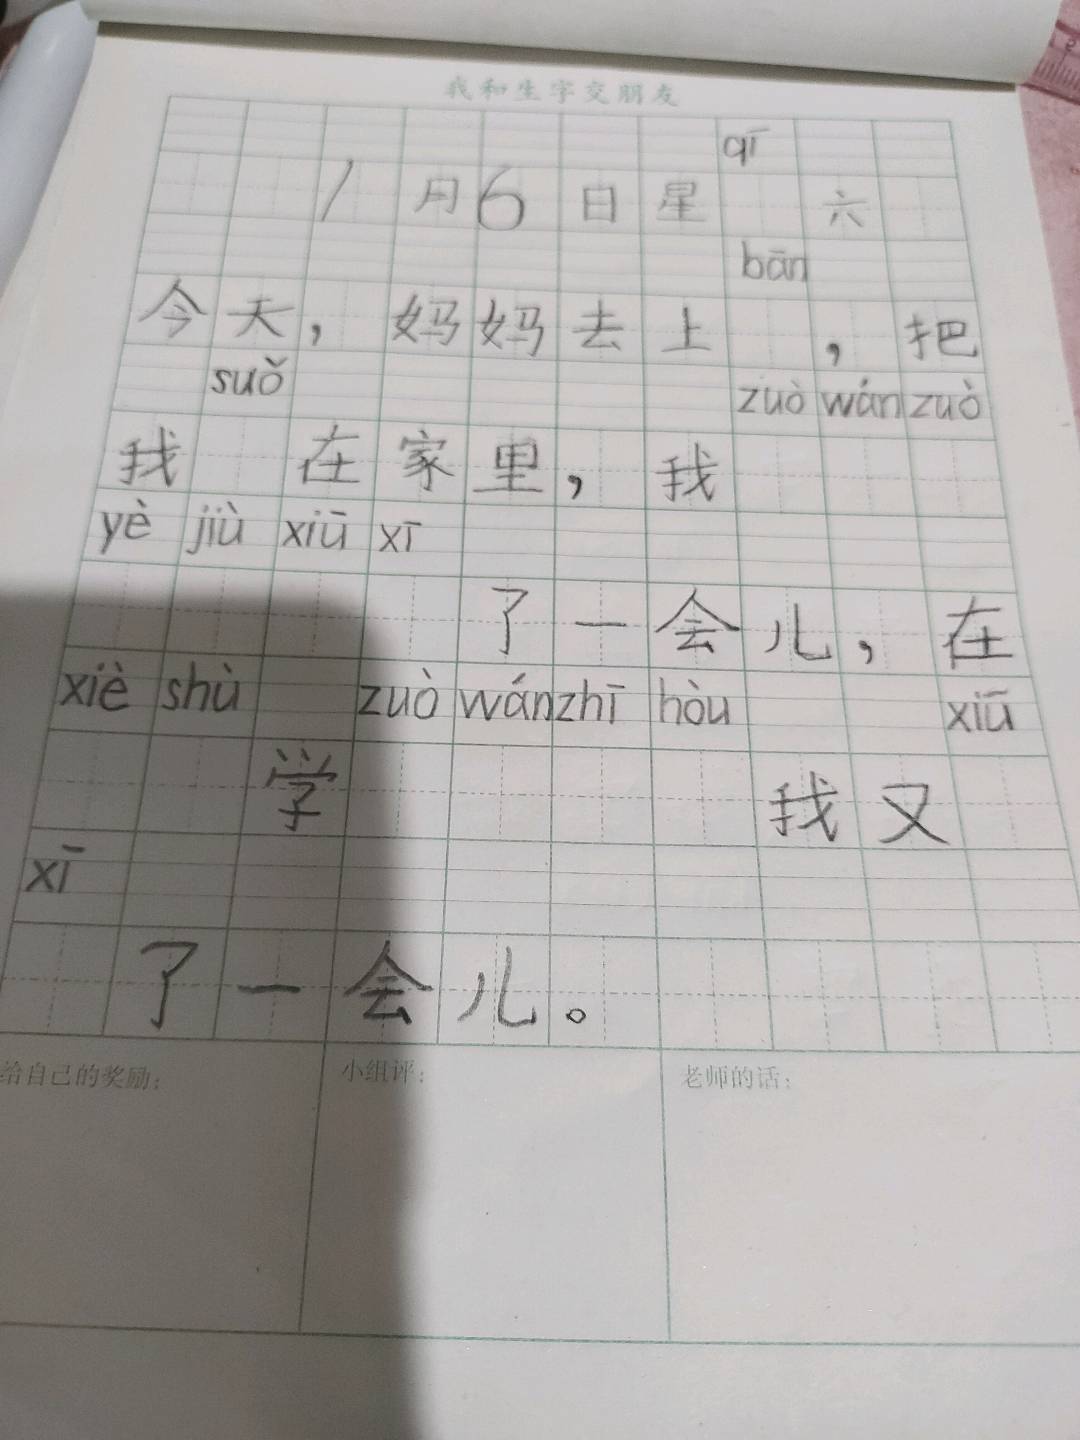 我和生字交朋友
qī
1月6日星 六
bān
今天，妈妈去上 ，把
suǒ zuò wán zuò
我 在家里，我
yè jiù xiū xī
了一会儿，在
xiè shù zuò wán zhī hòu xiū
学 我又
xī
了一会儿。
给自己的奖励： 小组评： 老师的话：